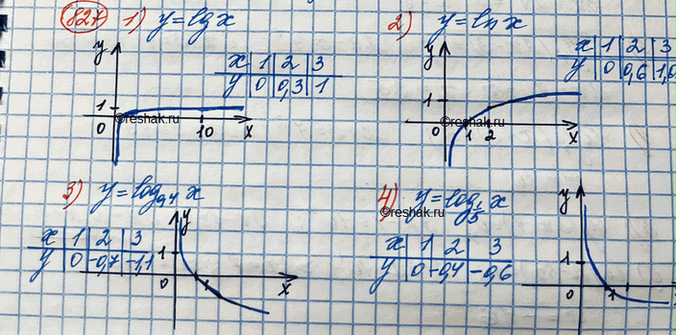 827 1) y = lg x
x | 1 | 2 | 3
y | 0 | 0,3 | 1
y
1
0
10
x
©reshak.ru
2) y = ln x
x | 1 | 2 | 3
y | 0 | 0,6 | 1,0
y
1
0
1 2
x
©reshak.ru
3) y = log₀,₄ x
x | 1 | 2 | 3
y | 0 | -0,7 | -1,1
y
1
0
1
x
4) y = log_{1/5} x
©reshak.ru
x | 1 | 2 | 3
y | 0 | -0,4 | -0,6
y
1
0
1
x